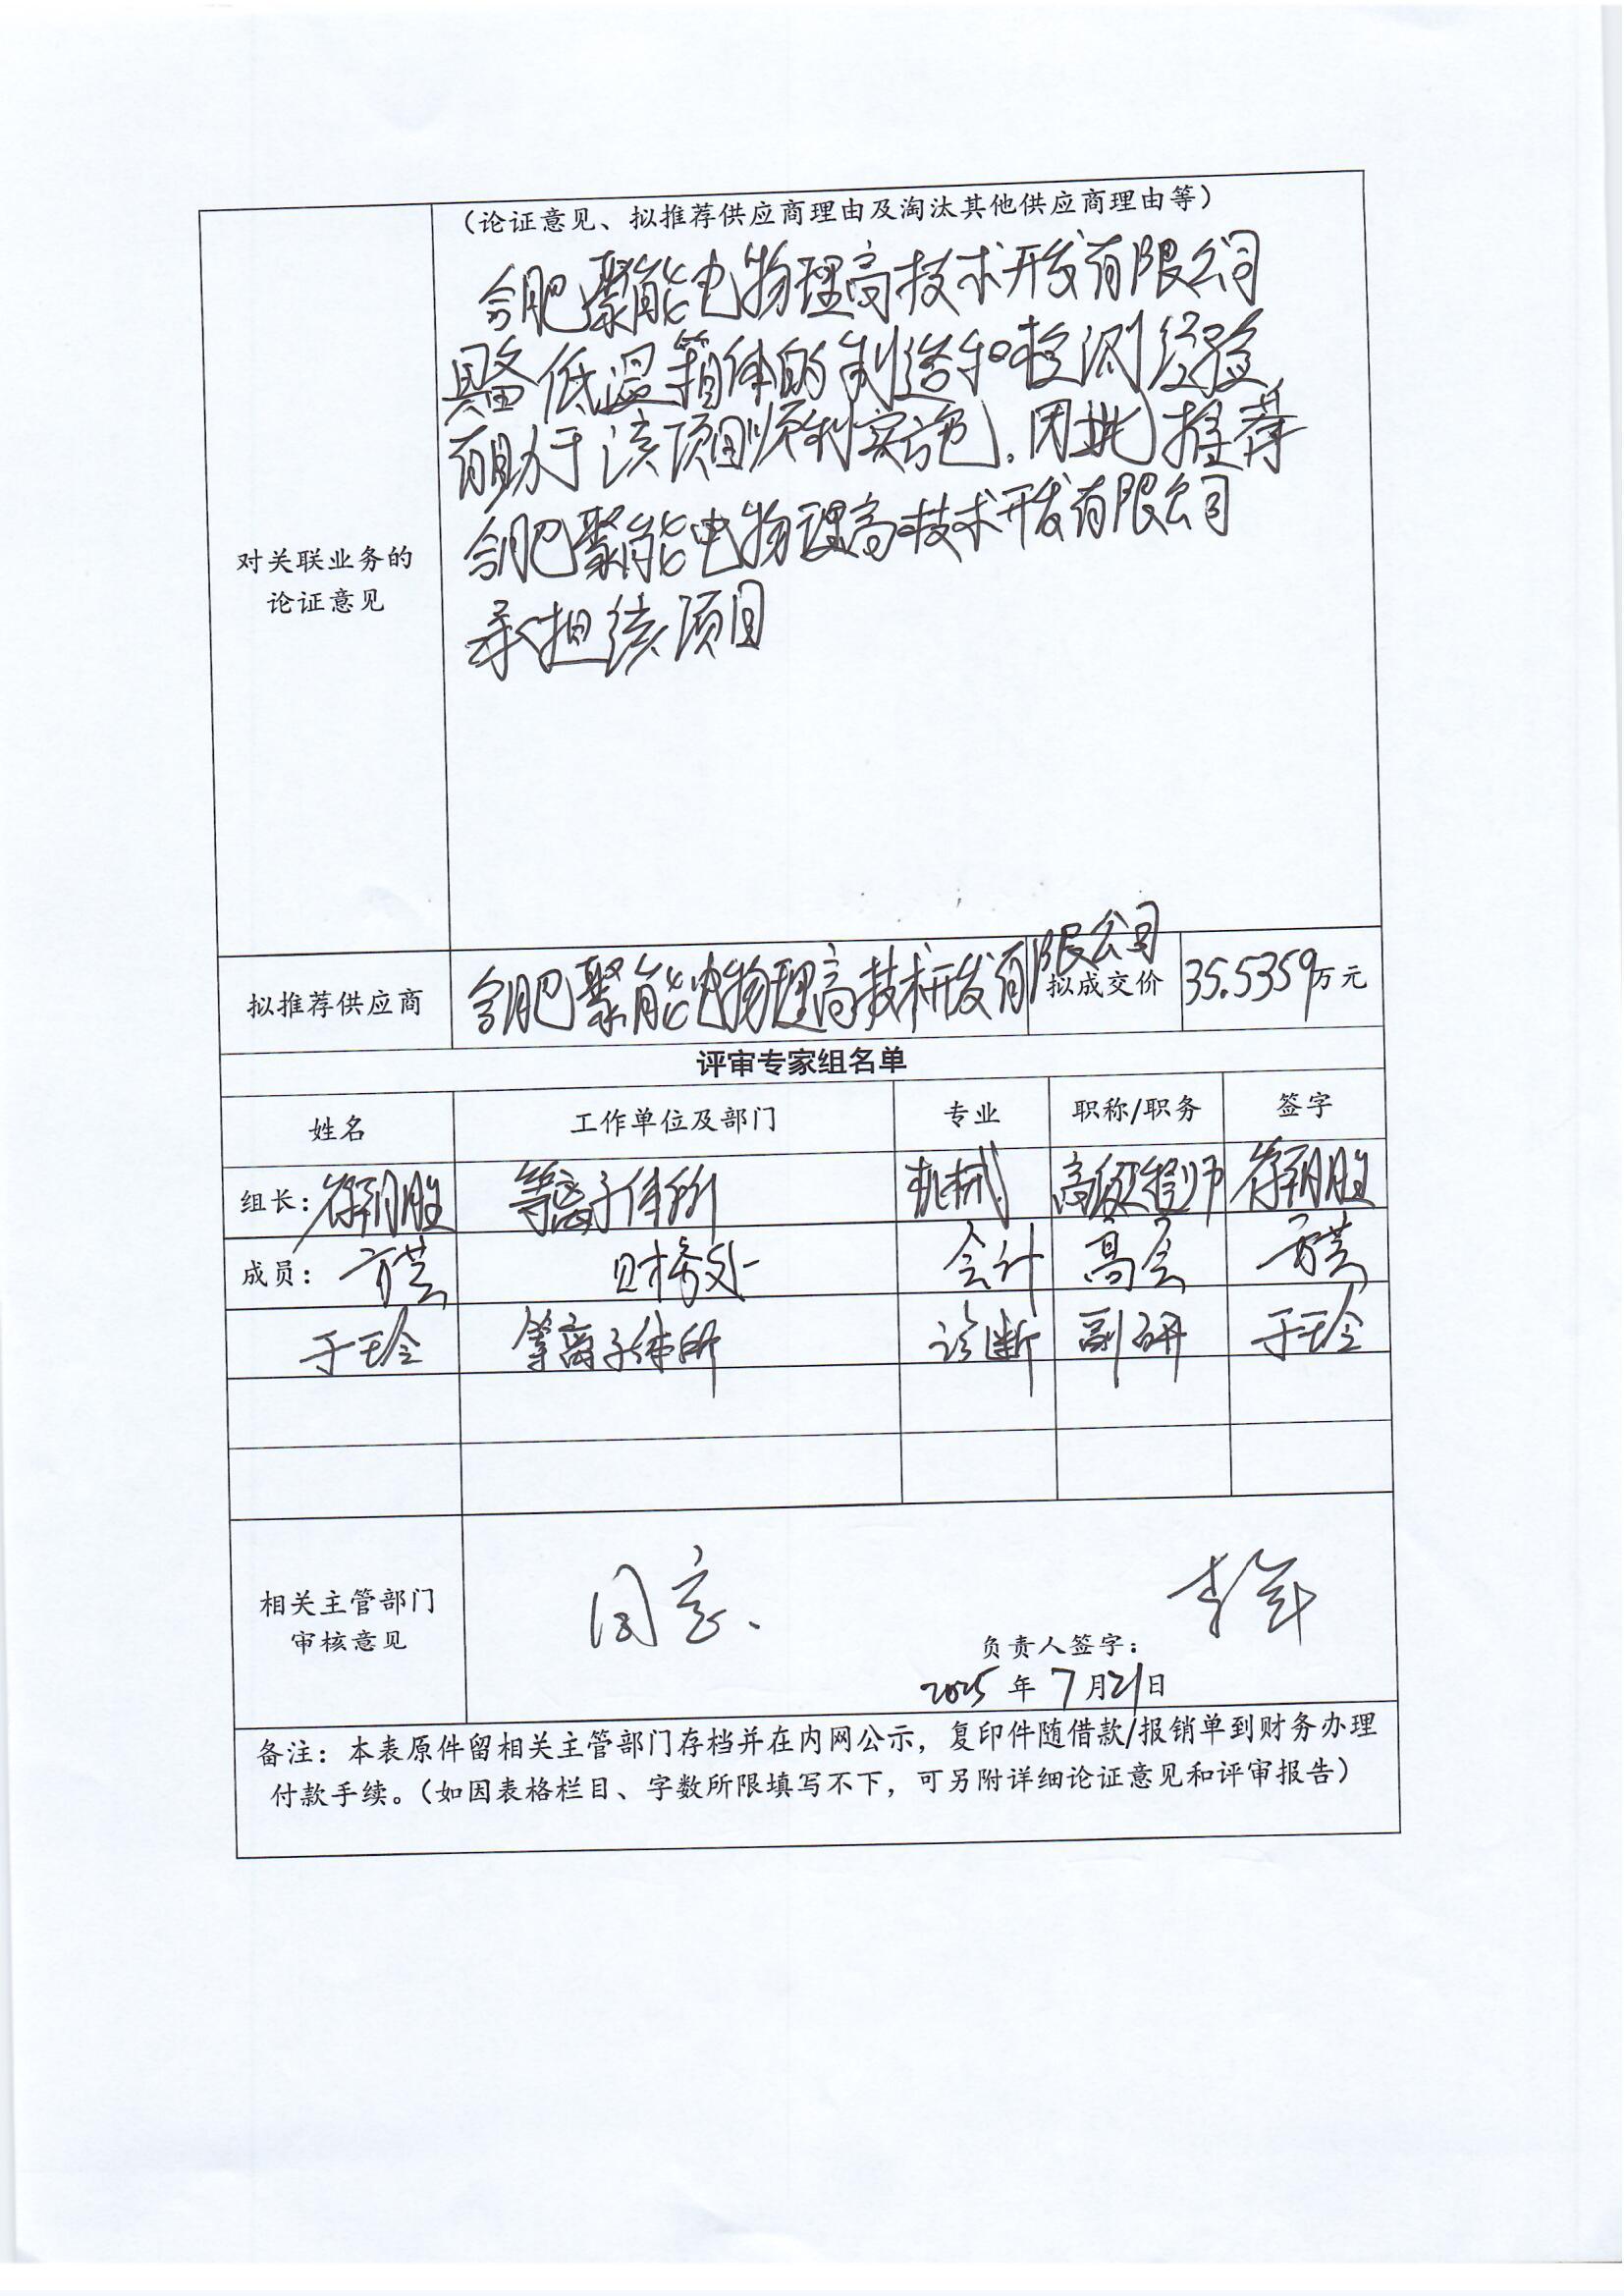 （论证意见、拟推荐供应商理由及淘汰其他供应商理由等）
合肥聚能电物理高技术开发有限公司
具备低温箱体的制造和检测经验,
有助于该项目顺利实施.因此推荐
合肥聚能电物理高技术开发有限公司
承担该项目
对关联业务的
论证意见
拟推荐供应商 合肥聚能电物理高技术开发有限公司 拟成交价 35.5359万元
评审专家组名单
姓名 工作单位及部门 专业 职称/职务 签字
组长： 等离子体所 机械 高级工程师
成员： 财务处 会计 高会
于玲 等离子体所 诊断 副研 于玲
相关主管部门
审核意见
同意.
负责人签字：
2025年7月21日
备注：本表原件留相关主管部门存档并在内网公示，复印件随借款/报销单到财务办理
付款手续。（如因表格栏目、字数所限填写不下，可另附详细论证意见和评审报告）